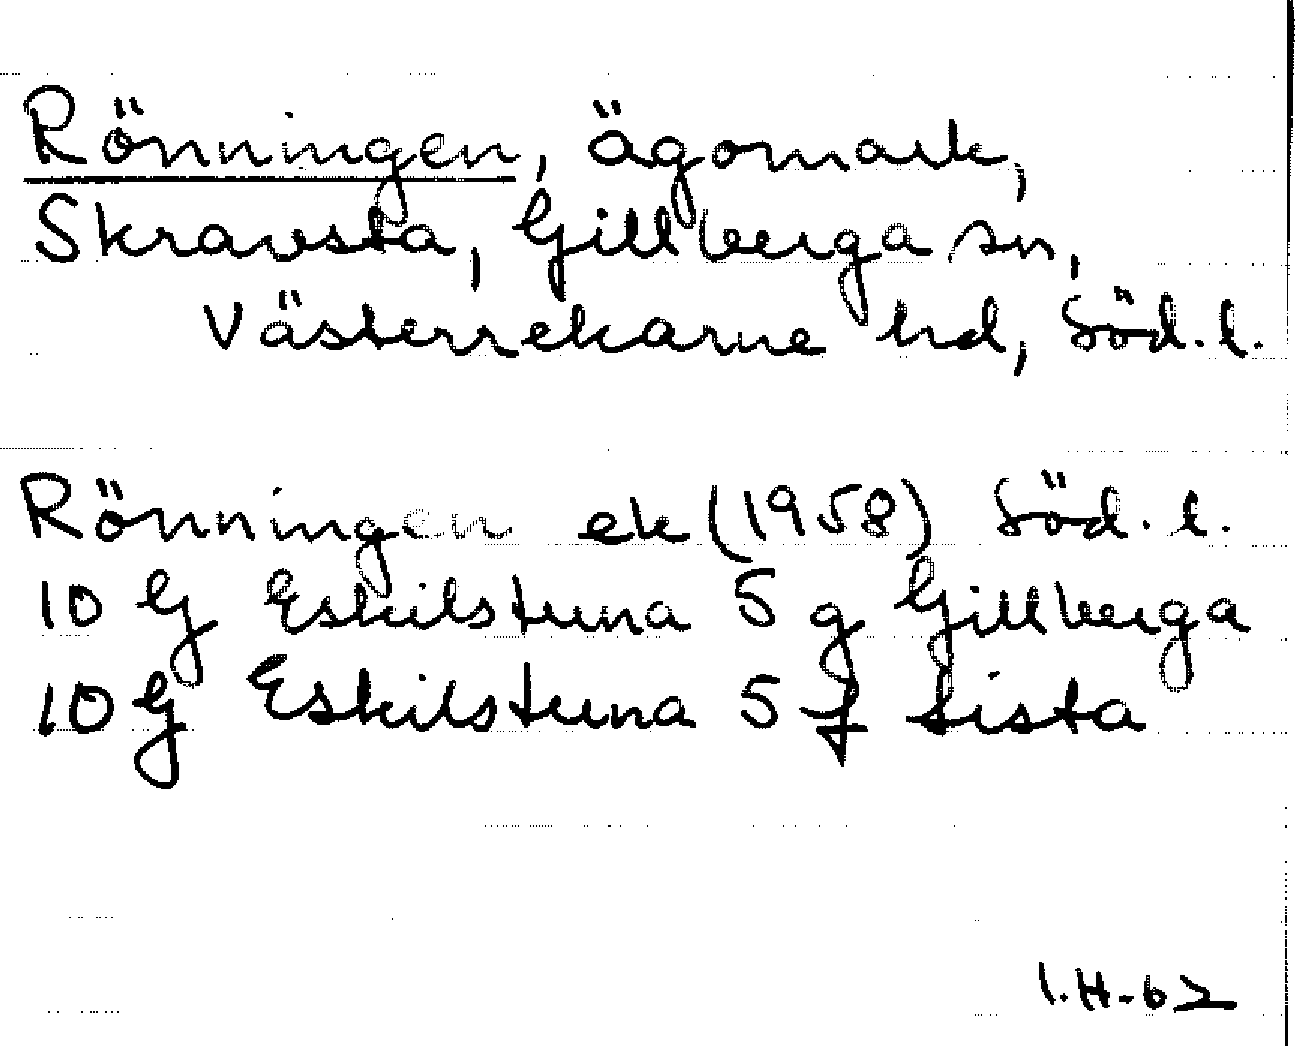 Rönningen, ägomark,
Skravsta, Gillberga sn,
Västerrekarne hd, Söd. l.
Rönningen ek (1958) Söd. l.
10 G Eskilstuna 5 g Gillberga
10 G Eskilstuna 5 f Lista
I.H-62